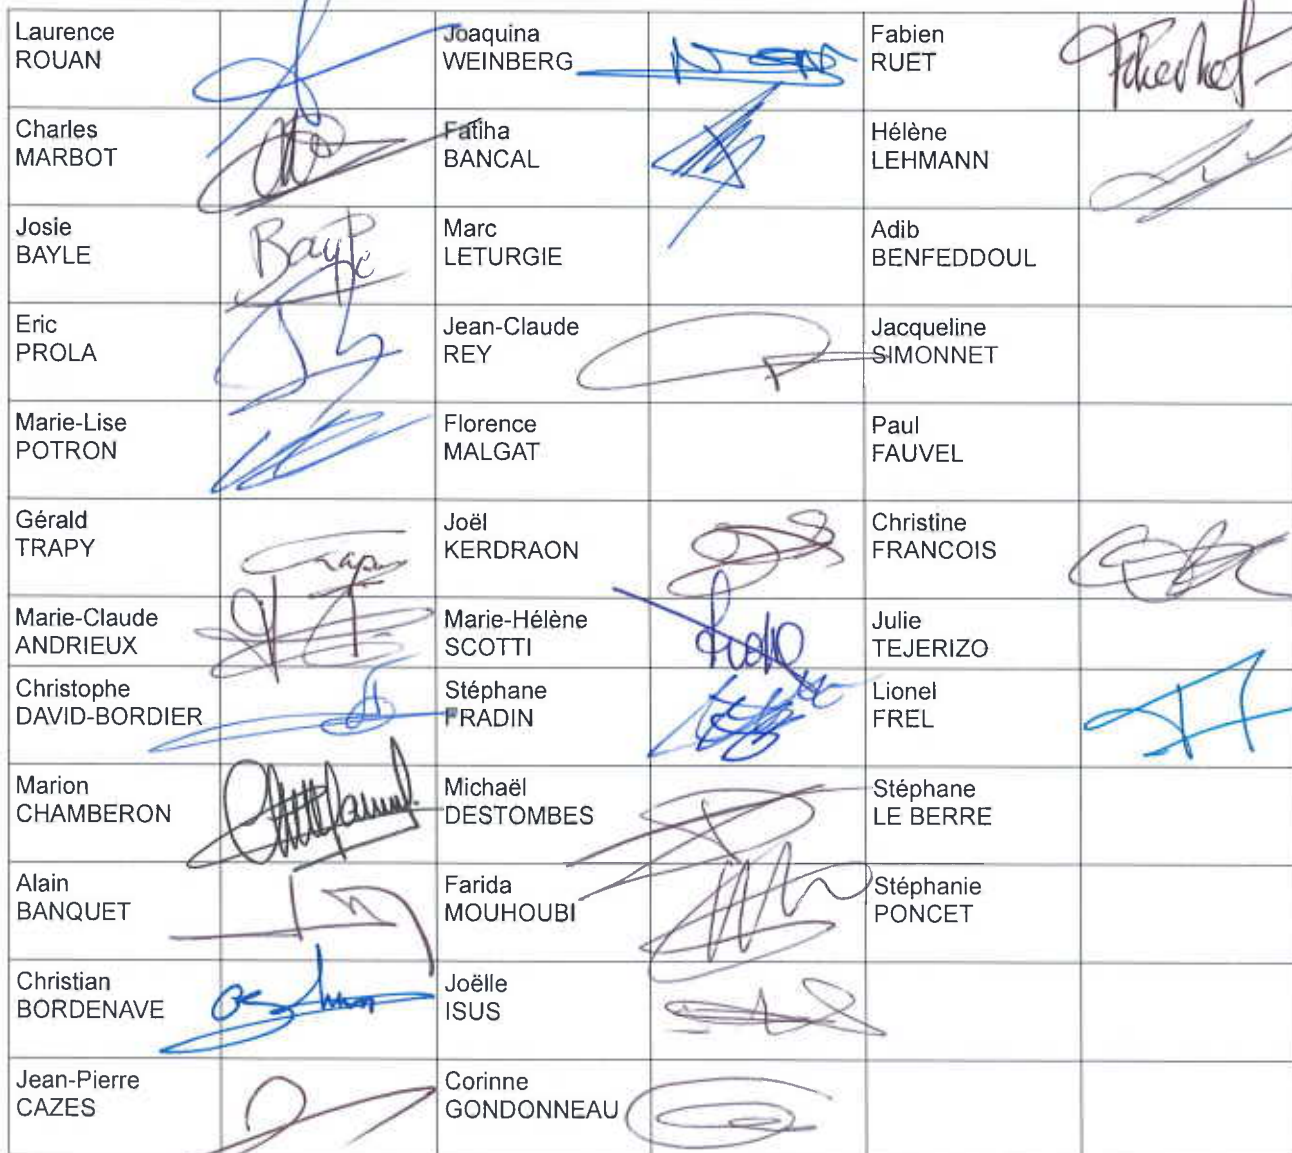 Laurence
ROUAN
Joaquina
WEINBERG
Fabien
RUET
Charles
MARBOT
Fatiha
BANCAL
Hélène
LEHMANN
Josie
BAYLE
Bayle
Marc
LETURGIE
Adib
BENFEDDOUL
Eric
PROLA
Jean-Claude
REY
Jacqueline
SIMONNET
Marie-Lise
POTRON
Florence
MALGAT
Paul
FAUVEL
Gérald
TRAPY
Joël
KERDRAON
Christine
FRANCOIS
Marie-Claude
ANDRIEUX
Marie-Hélène
SCOTTI
Julie
TEJERIZO
Christophe
DAVID-BORDIER
Stéphane
FRADIN
Lionel
FREL
Marion
CHAMBERON
Michaël
DESTOMBES
Stéphane
LE BERRE
Alain
BANQUET
Farida
MOUHOUBI
Stéphanie
PONCET
Christian
BORDENAVE
Joëlle
ISUS
Jean-Pierre
CAZES
Corinne
GONDONNEAU